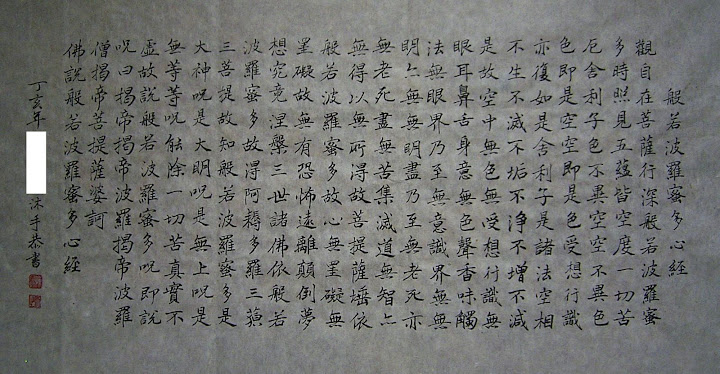 般若波羅蜜多心經
觀自在菩薩行深般若波羅蜜
多時照見五蘊皆空度一切苦
厄舍利子色不異空空不異色
色即是空空即是色受想行識
亦復如是舍利子是諸法空相
不生不滅不垢不淨不增不減
是故空中無色無受想行識無
眼耳鼻舌身意無色聲香味觸
法無眼界乃至無意識界無無
明亦無無明盡乃至無老死亦
無老死盡無苦集滅道無智亦
無得以無所得故菩提薩埵依
般若波羅蜜多故心無罣礙無
罣礙故無有恐怖遠離顛倒夢
想究竟涅槃三世諸佛依般若
波羅蜜多故得阿耨多羅三藐
三菩提故知般若波羅蜜多是
大神呪是大明呪是無上呪是
無等等呪能除一切苦真實不
虛故說般若波羅蜜多呪即說
呪曰揭帝揭帝波羅揭帝波羅
僧揭帝菩提薩婆訶
佛說般若波羅蜜多心經
丁亥年 沐手恭書